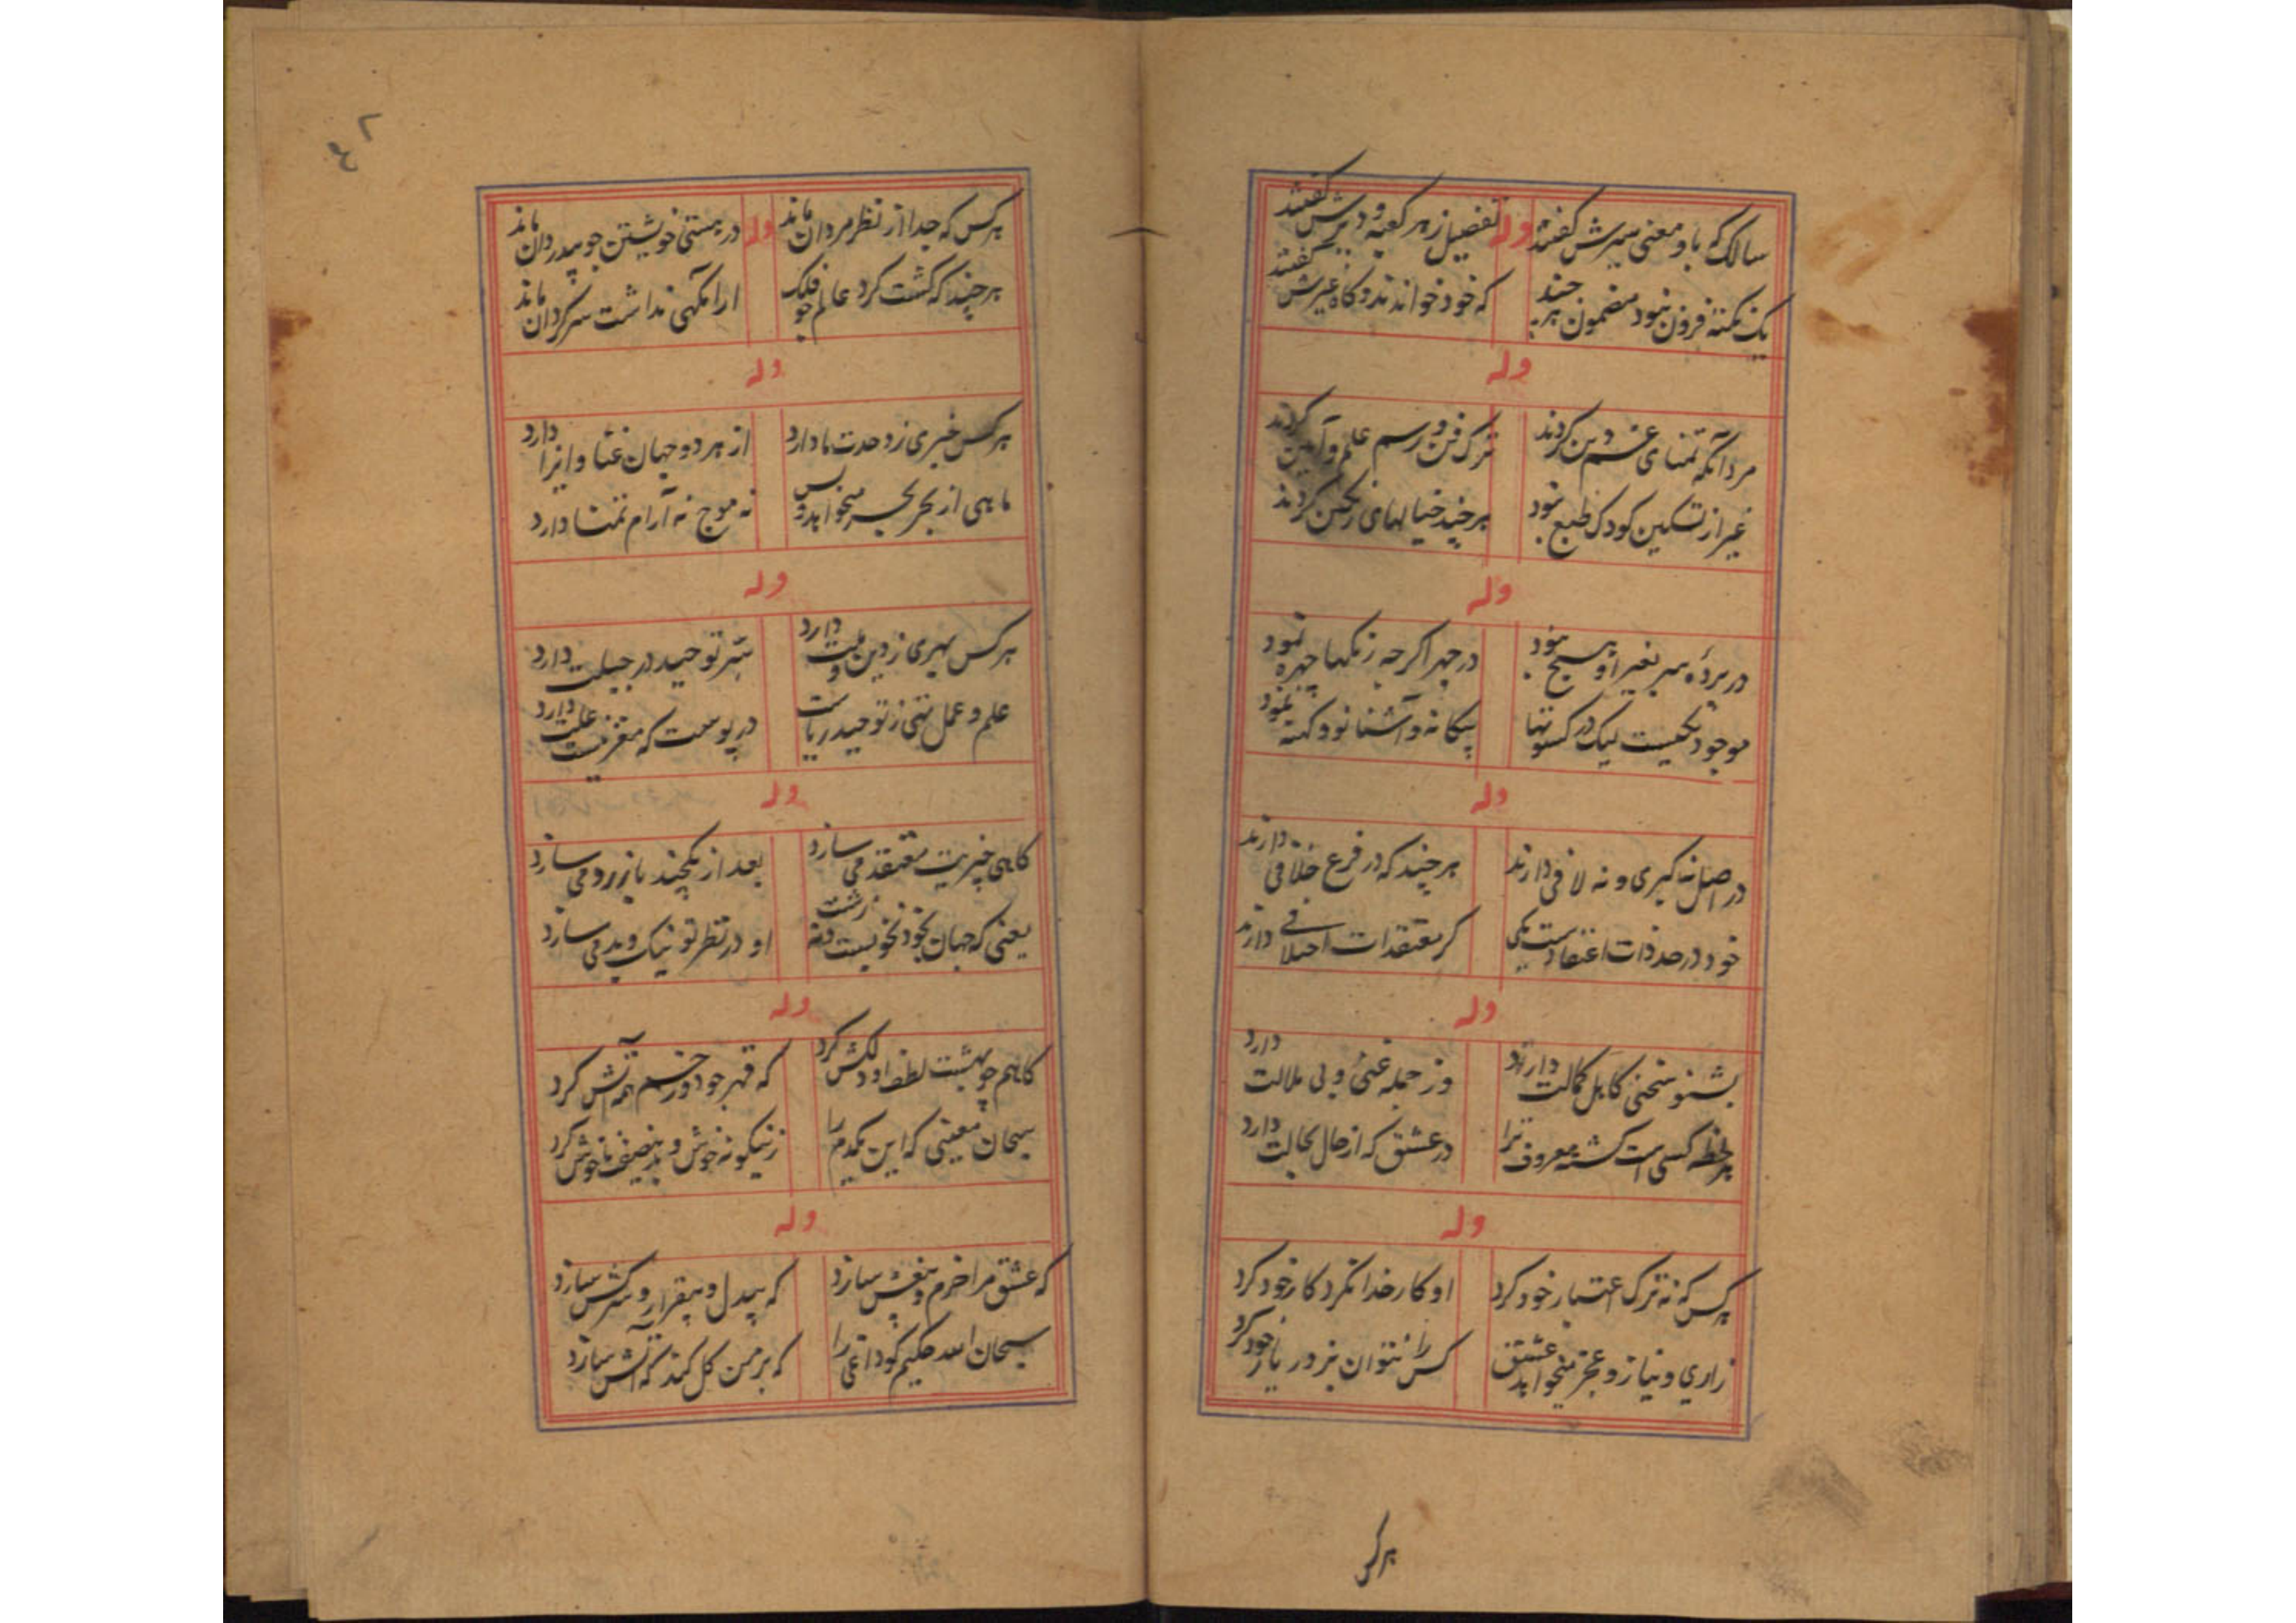 سالک که باو معنی سیرش گفتند وله تفصیل زهر کعبه و دیرش گفتند
یک نکته فزون نبود مضمون هر چند که خود خواندند و گاه غیرش گفتند
وله
مردانکه تمنای غم دین کردند ترک فن و رسم علم و آیین کردند
غیر از تسکین کودک طبع نبود هر چند خیالهای رنکین کردند
وله
در پردهٔ بغیر او هیچ نبود در چهر اکرچه رنکها چهره نمود
موجود یکیست لیک در کسوتها بیکانه و آشنا نو و کهنه نمود
وله
در اصل نه کبری و نه لافی دارند هر چند که در فرع خلافی دارند
خود در حد ذات اعتقادست یکی کر معتقدات اختلافی دارند
وله
بشنو سخنی کاهل کمالت دارد وز جمله غنی و بی ملالت دارد
هر لحظه کسی است کشته معروف ترا در عشق که از حال بحالت دارد
وله
هر کس که نه ترک اعتبار خود کرد او کار خدا نکرد کار خود کرد
زاری و نیاز و عجز میخواهد عشق کس را نتوان بزور یار خود کرد
هر کس
هر کس که جدا از نظر مردان ماند وله در هستی خویشتن چو بیدردان ماند
هر چند که کشت کرد عالم چو فلک ارامکهی نداشت سرکردان ماند
وله
هر کس خبری ز وحدت ما دارد از هر دو جهان غنا و ابرا دارد
ماهی از بحر بحر میخواهد و بس نه موج نه آرام تمنا دارد
وله
هر کس بهری ز دین و ملت دارد سر توحید در جبلت دارد
علم و عمل تهی ز توحید ریاست در پوست که مغز نیست علت دارد
وله
کاهی خبریت معتقد می سازد بعد از یکچند باز رد می سازد
یعنی که جهان بخود نه خوبست نه زشت او در نظر تو نیک و بد می سازد
وله
کاهم چو بهشت لطف او دلکش کرد که قهر چو دوزخم همه آتش کرد
سبحان معینی که این یکدم را زنیکونه خوش و بدنصیف ناخوش کرد
وله
که عشق مرا خرم و بیغش سازد که بیدل و بیقرار و سرکش سازد
سبحان الله حکیم کو داغی را که بر من کل کند که آتش سازد